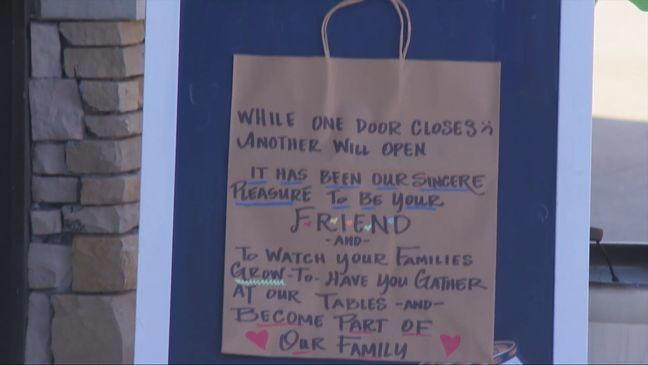 WHILE ONE DOOR CLOSES
ANOTHER WILL OPEN
IT HAS BEEN OUR SINCERE
PLEASURE TO BE YOUR
FRIEND
-AND-
TO WATCH YOUR FAMILIES
GROW-TO-HAVE YOU GATHER
AT OUR TABLES -AND-
BECOME PART OF
OUR FAMILY